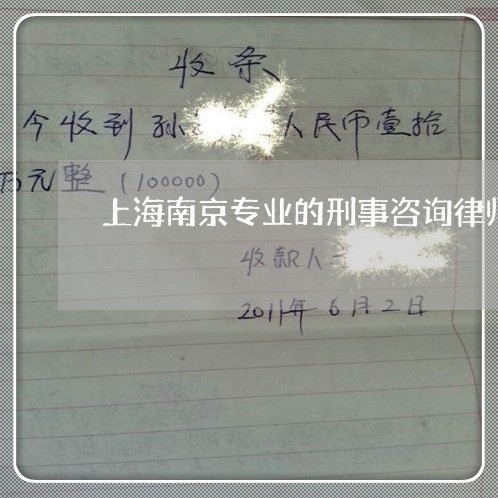 收条
今收到孙 人民币壹拾
万元整(100000)
上海南京专业的刑事咨询律师
收款人
2011年6月2日